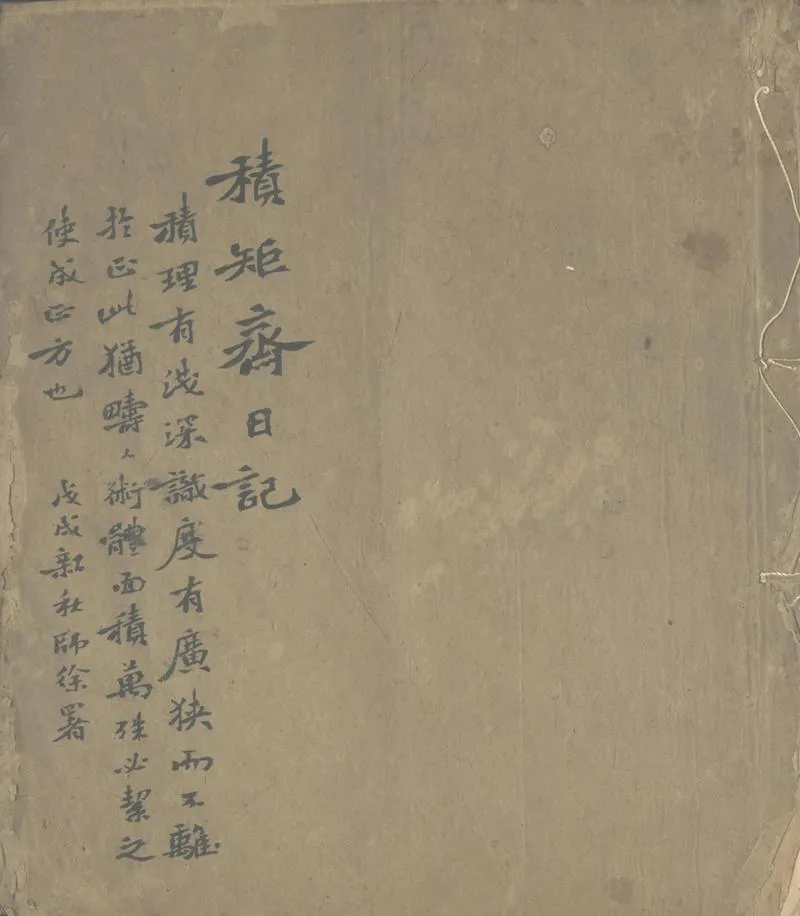 積矩齋日記
積理有淺深識度有廣狹而不離
於正此猶疇人術體面積萬殊必絜之
使成正方也 戊戌新秋師徐署